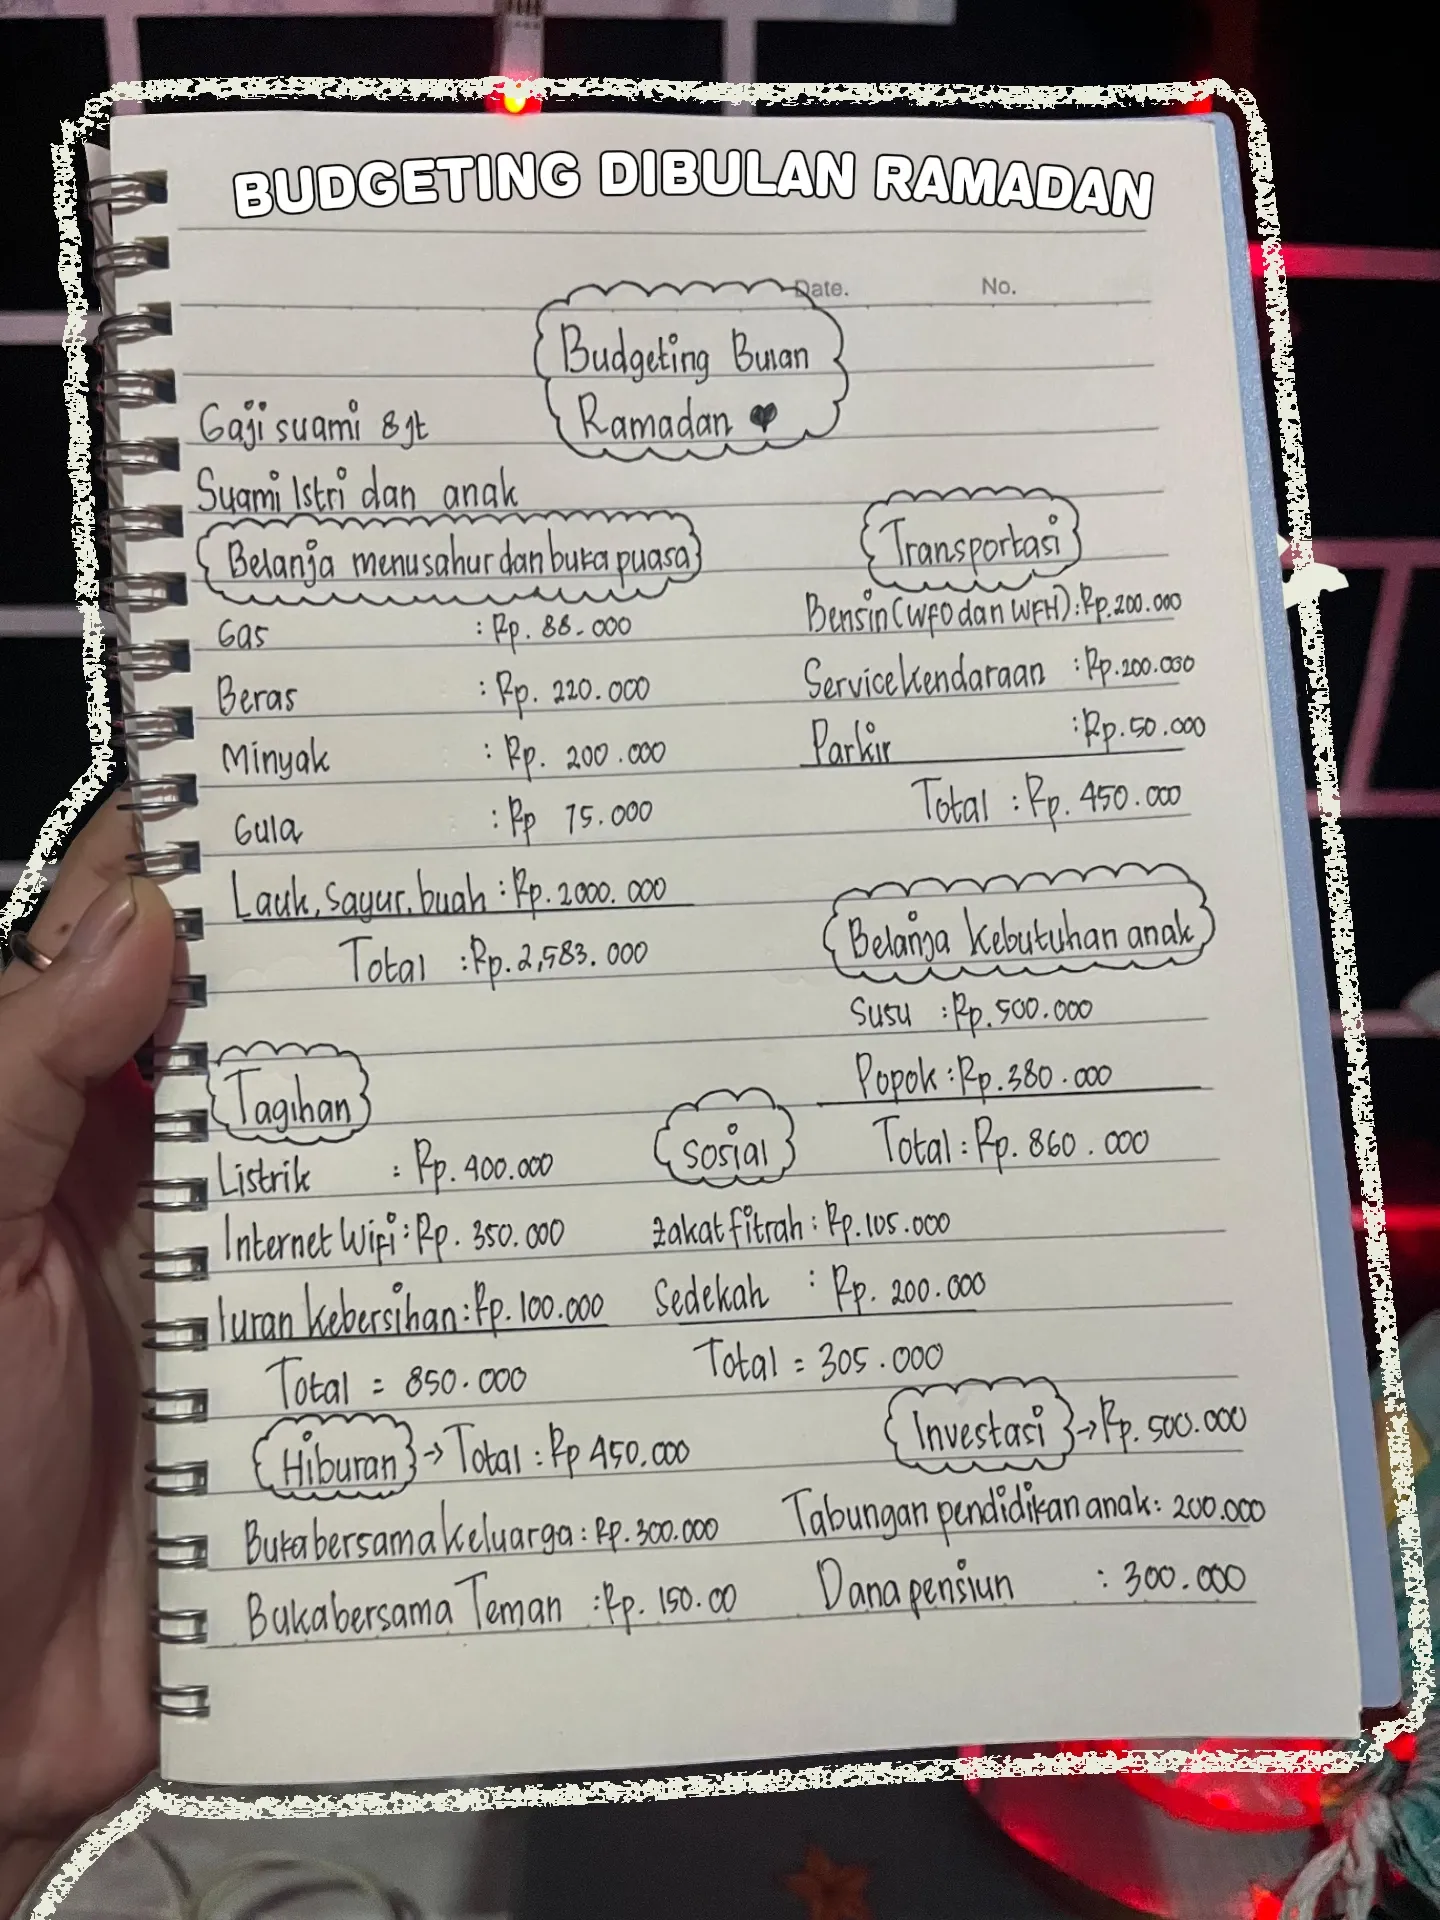 BUDGETING DIBULAN RAMADAN
Date. No.
Budgeting Bulan
Ramadan
Gaji suami 8 jt
Suami Istri dan anak
Belanja menu sahur dan buka puasa
Gas : Rp. 88.000
Beras : Rp. 220.000
Minyak : Rp. 200.000
Gula : Rp 75.000
Lauk, sayur, buah : Rp. 2000.000
Total : Rp. 2,583.000
Transportasi
Bensin (WFO dan WFH) : Rp. 200.000
Service kendaraan : Rp. 200.000
Parkir : Rp. 50.000
Total : Rp. 450.000
Belanja kebutuhan anak
Susu : Rp. 500.000
Popok : Rp. 380.000
Total : Rp. 860.000
Tagihan
Listrik : Rp. 400.000
Internet Wifi : Rp. 350.000
Iuran kebersihan : Rp. 100.000
Total = 850.000
Sosial
Zakat fitrah : Rp. 105.000
Sedekah : Rp. 200.000
Total = 305.000
Hiburan → Total : Rp 450.000
Buka bersama keluarga : Rp. 300.000
Buka bersama Teman : Rp. 150.00
Investasi → Rp. 500.000
Tabungan pendidikan anak : 200.000
Dana pensiun : 300.000